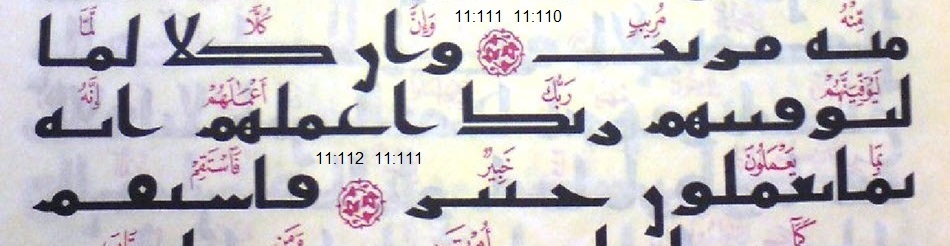 مِّنْهُ مُرِيبٍ 11:110 11:111 وَإِنَّ كُلًّا لَّمَّا
منه مريب وان كلا لما
لَيُوَفِّيَنَّهُمْ رَبُّكَ أَعْمَـٰلَهُمْ إِنَّهُ
ليوفينهم ربك اعملهم انه
بِمَا يَعْمَلُونَ خَبِيرٌ 11:111 11:112 فَاسْتَقِمْ
بما يعملون خبير فاستقم